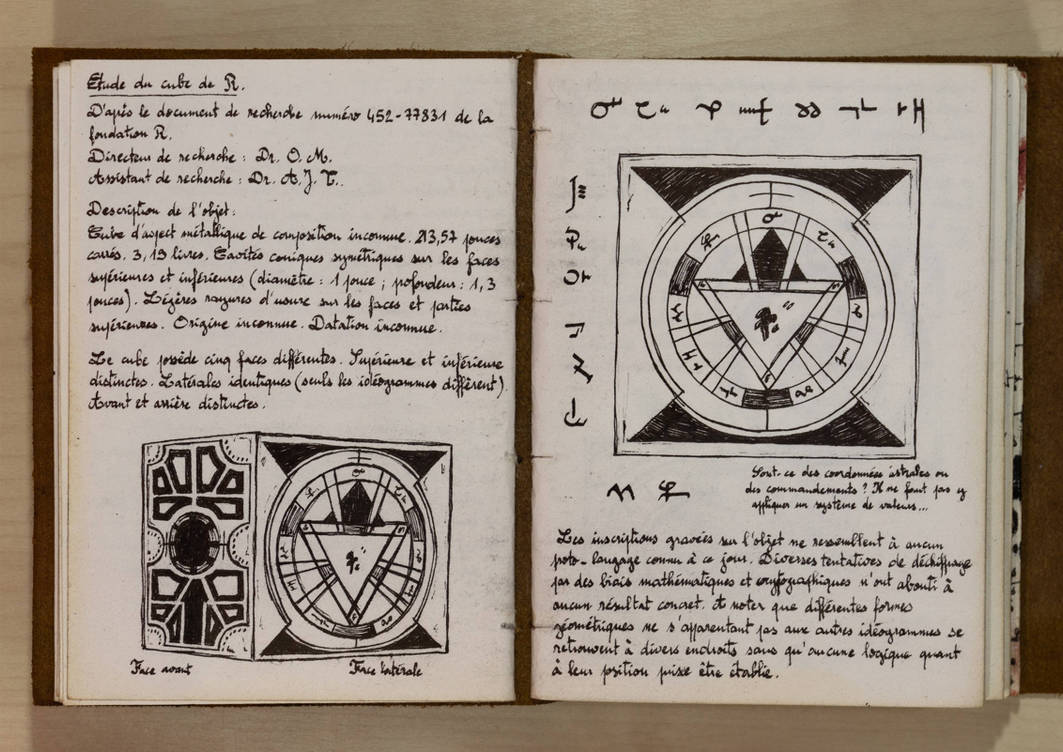 Etude du cube de R.
D'après le document de recherche numéro 452-77831 de la
fondation R.
Directeur de recherche : Dr. O. M.
Assistant de recherche : Dr. A. J. T..
Description de l'objet :
Cube d'aspect métallique de composition inconnue. 213,57 pouces
carrés. 3,19 livres. Cavités coniques symétriques sur les faces
supérieures et inférieures (diamètre : 1 pouce ; profondeur : 1,3
pouces). Légères rayures d'usure sur les faces et parties
supérieures. Origine inconnue. Datation inconnue.
Le cube possède cinq faces différentes. Supérieure et inférieure
distinctes. Latérales identiques (seuls les idéogrammes diffèrent)
Avant et arrière distinctes.
Face avant
Face latérale
Sont-ce des coordonnées astrales ou
des commandements ? Il ne faut pas y
appliquer un système de valeurs...
Les inscriptions gravées sur l'objet ne ressemblent à aucun
proto-langage connu à ce jour. Diverses tentatives de déchiffrage
par des biais mathématiques et cryptographiques n'ont abouti à
aucun résultat concret. A noter que différentes formes
géométriques ne s'apparentant pas aux autres idéogrammes se
retrouvent à divers endroits sans qu'aucune logique quant
à leur position puisse être établie.